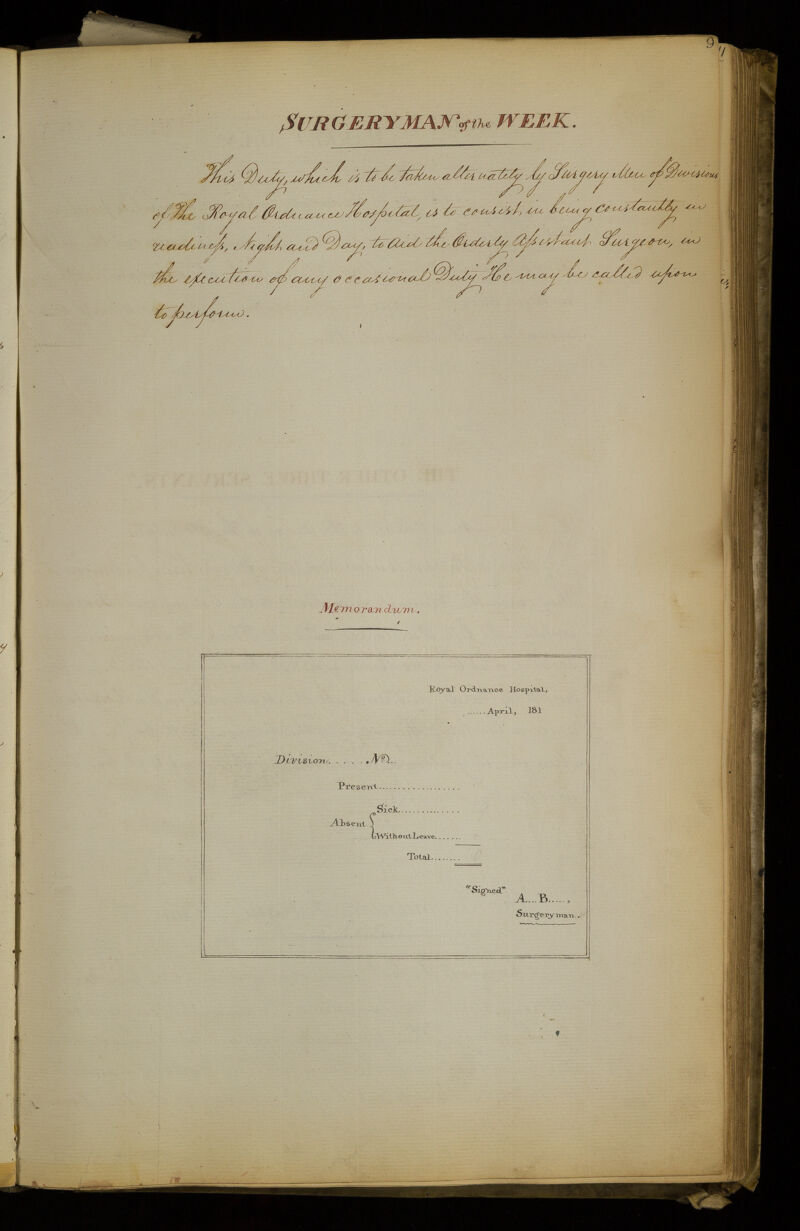 9
SURGERYMAN of the WEEK.
This Duty, which is to be taken alternately by Surgery Men of Divisions
of The Royal Ordnance Hospital, is to consist, in being constantly in
readiness, Night and Day, to aid the Orderly Assistant Surgeon, in
the execution of any occasional Duty He may be called upon
to perform.
Memorandum.
Royal Ordnance Hospital,
......April, 181
Division. . . . . . No..
Present....................
Sick...............
Absent {
Without Leave.......
Total........
"Signed"
A.... B.....,
Surgeryman.